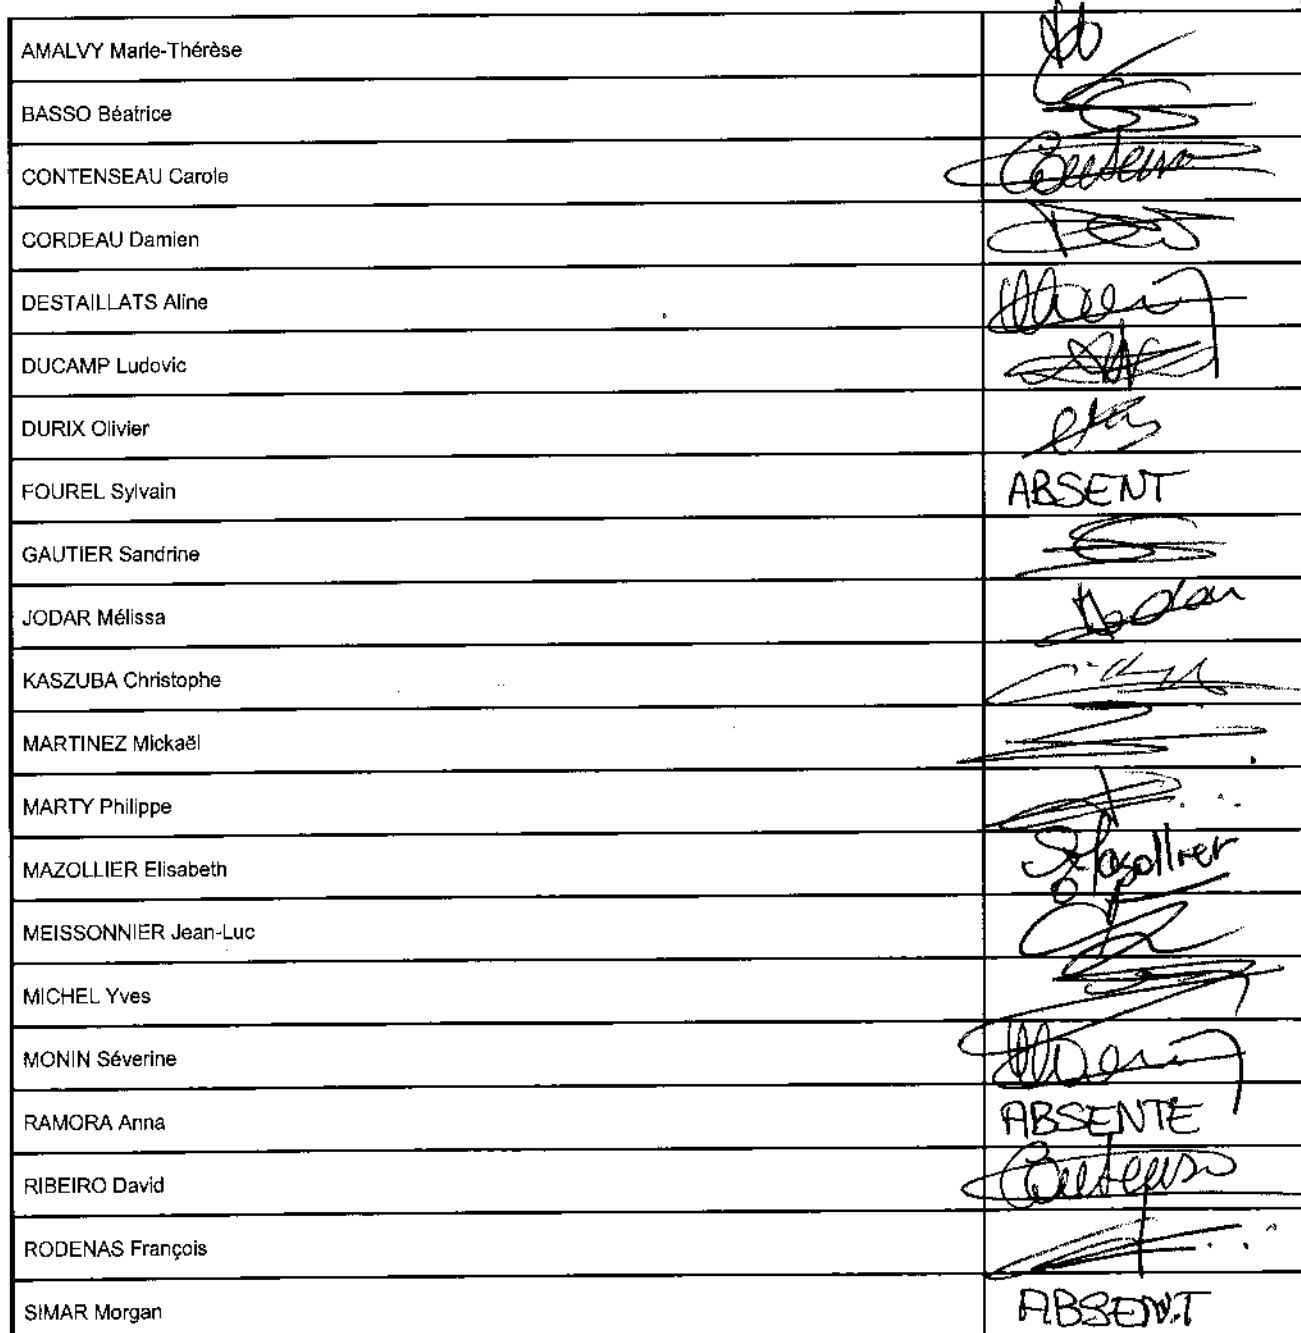 AMALVY Marie-Thérèse
BASSO Béatrice
CONTENSEAU Carole
CORDEAU Damien
DESTAILLATS Aline
DUCAMP Ludovic
DURIX Olivier
FOUREL Sylvain ABSENT
GAUTIER Sandrine
JODAR Mélissa Jodar
KASZUBA Christophe
MARTINEZ Mickaël
MARTY Philippe
MAZOLLIER Elisabeth Mazollier
MEISSONNIER Jean-Luc
MICHEL Yves
MONIN Séverine
RAMORA Anna ABSENTE
RIBEIRO David
RODENAS François
SIMAR Morgan ABSENT